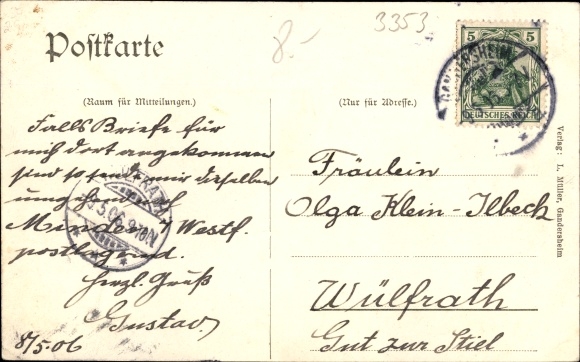 8.-
3353
Postkarte
5 5
DEUTSCHES REICH
GANDERSHEIM
(Raum für Mitteilungen.)
(Nur für Adresse.)
Falls Briefe für
mich dort angekommen
sind so mir dieselben
umgehend nach
Minden i/ Westf.
postlagernd.
Herzl. Gruß
Gustav.
8/5.06
Fräulein
Olga Klein-Ilbeck
Wülfrath
Gut zur Stiel
Verlag: L. Müller, Gandersheim